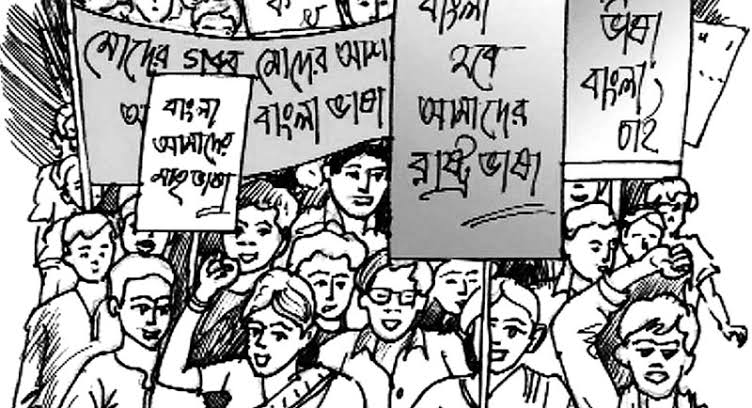 মোদের গরব মোদের আশা
বাংলা ভাষা
বাংলা
আমাদের
মাতৃভাষা
বাংলা
হবে
আমাদের
রাষ্ট্রভাষা
ভাষা
বাংলা
চাই